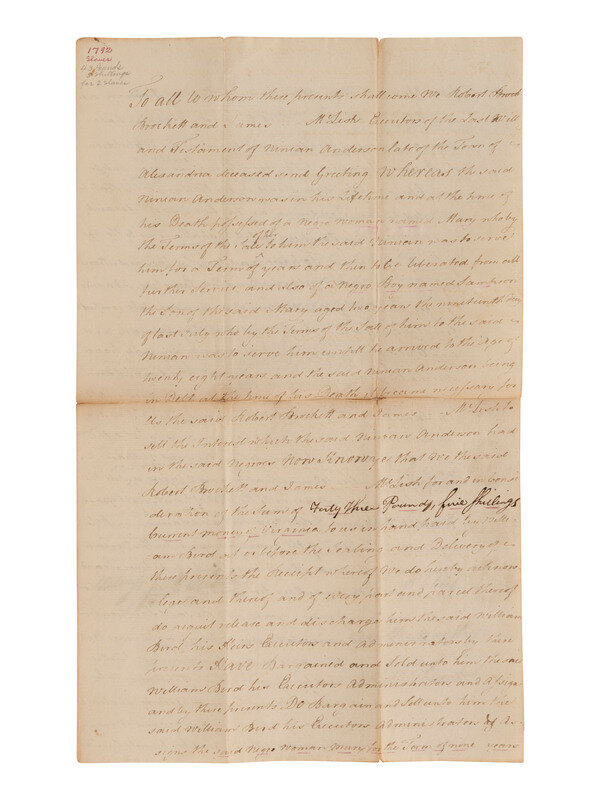 1792
Slaves
43 Pounds
5 shillings
for 2 Slaves
To all to whom these presents shall come We Robert Brock
Brockett and James McLish Executors of the Last Will
and Testament of Ninian Anderson late of the Town of
Alexandria deceased send Greeting Whereas the said
Ninian Anderson was in his Lifetime and at the time of
his Death possessed of a Negro Woman named Mary who by
the Terms of the Sale to him the said Ninian was to serve
him for a Term of years and then to be liberated from all
further Service and also of a Negro Boy named Sampson
the Son of the said Mary aged two years the Day
of last July who by the Terms of the Sale of him to the said
Ninian was to serve him untill he arrived to the Age of
twenty eight years and the said Ninian Anderson being
in Debt at the time of his Death it became necessary for
Us the said Robert Brockett and James McLish to
sell the Interest which the said Ninian Anderson had
in the said Negroes Now Know ye that We the said
Robert Brockett and James McLish for and in consi
deration of the Sum of Forty three Pounds five Shillings
Current money of Virginia to us in hand paid by Willi-
am Bird at or before the Sealing and Delivery of
these presents the Receipt whereof We do hereby acknow
ledge and thereof and of every part and parcel thereof
do acquit release and discharge him the said William
Bird his Heirs Executors and Administrators by these
presents Have Bargained and Sold unto him the said
William Bird his Executors Administrators and Assigns
and by these presents Do Bargain and Sell unto him the
said William Bird his Executors Administrators & As-
signs the said Negro Woman Mary for the Term of years